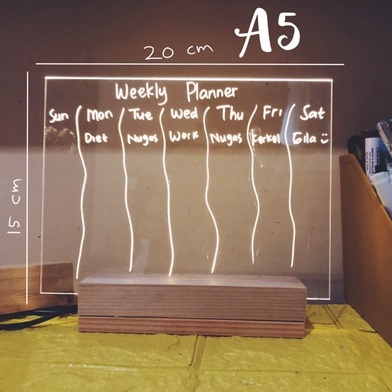 A5
20 cm
15 cm
Weekly Planner
Sun Mon Tue Wed Thu Fri Sat
Diet Nugas Work Nugas Kerkel Gila